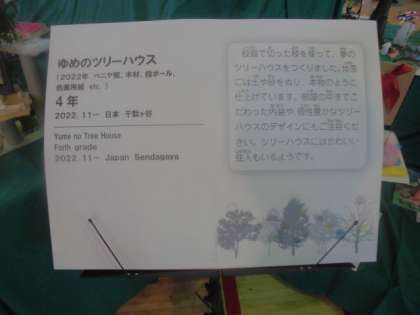 ゆめのツリーハウス
(2022年 ベニヤ板、木材、段ボール、
色画用紙 etc.)
4年
2022.11ー 日本 千駄ヶ谷
Yume no Tree House
Forth grade
2022.11ー Japan Sendagaya
校庭で切った枝を使って、夢の
ツリーハウスをつくりました。地面
には土や砂をぬり、本物のように
仕上げています。部屋の中までこ
だわった内装や個性豊かなツリー
ハウスのデザインにもご注目くだ
さい。ツリーハウスにはかわいい
住人もいるようです。